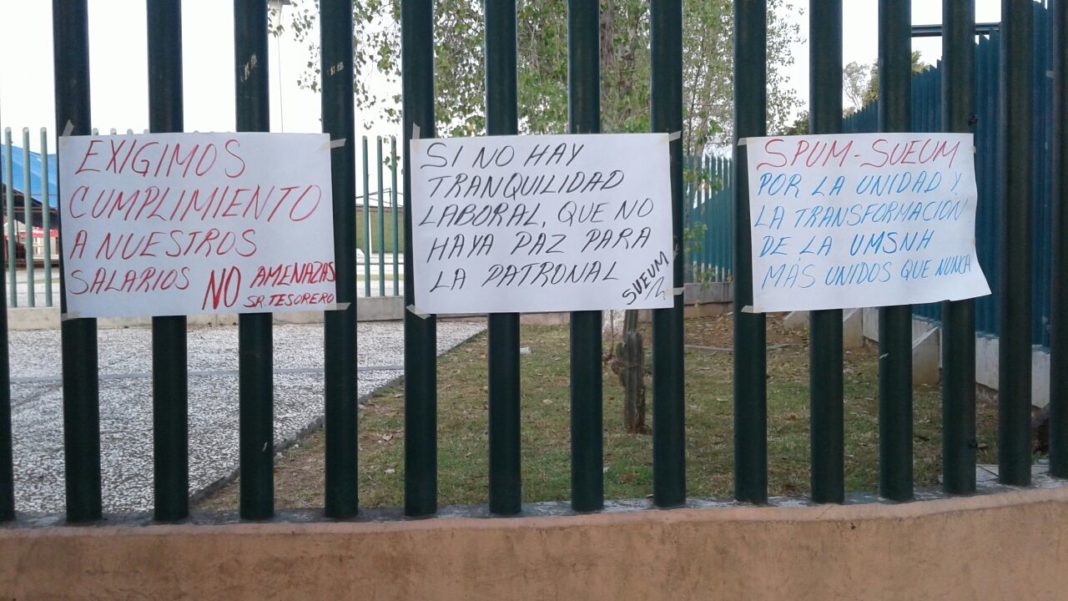 EXIGIMOS
CUMPLIMIENTO
A NUESTROS
SALARIOS NO AMENAZAS
SR. TESORERO
SI NO HAY
TRANQUILIDAD
LABORAL, QUE NO
HAYA PAZ PARA
LA PATRONAL
SUEUM
SPUM-SUEUM
POR LA UNIDAD Y
LA TRANSFORMACION
DE LA UMSNH
MÁS UNIDOS QUE NUNCA